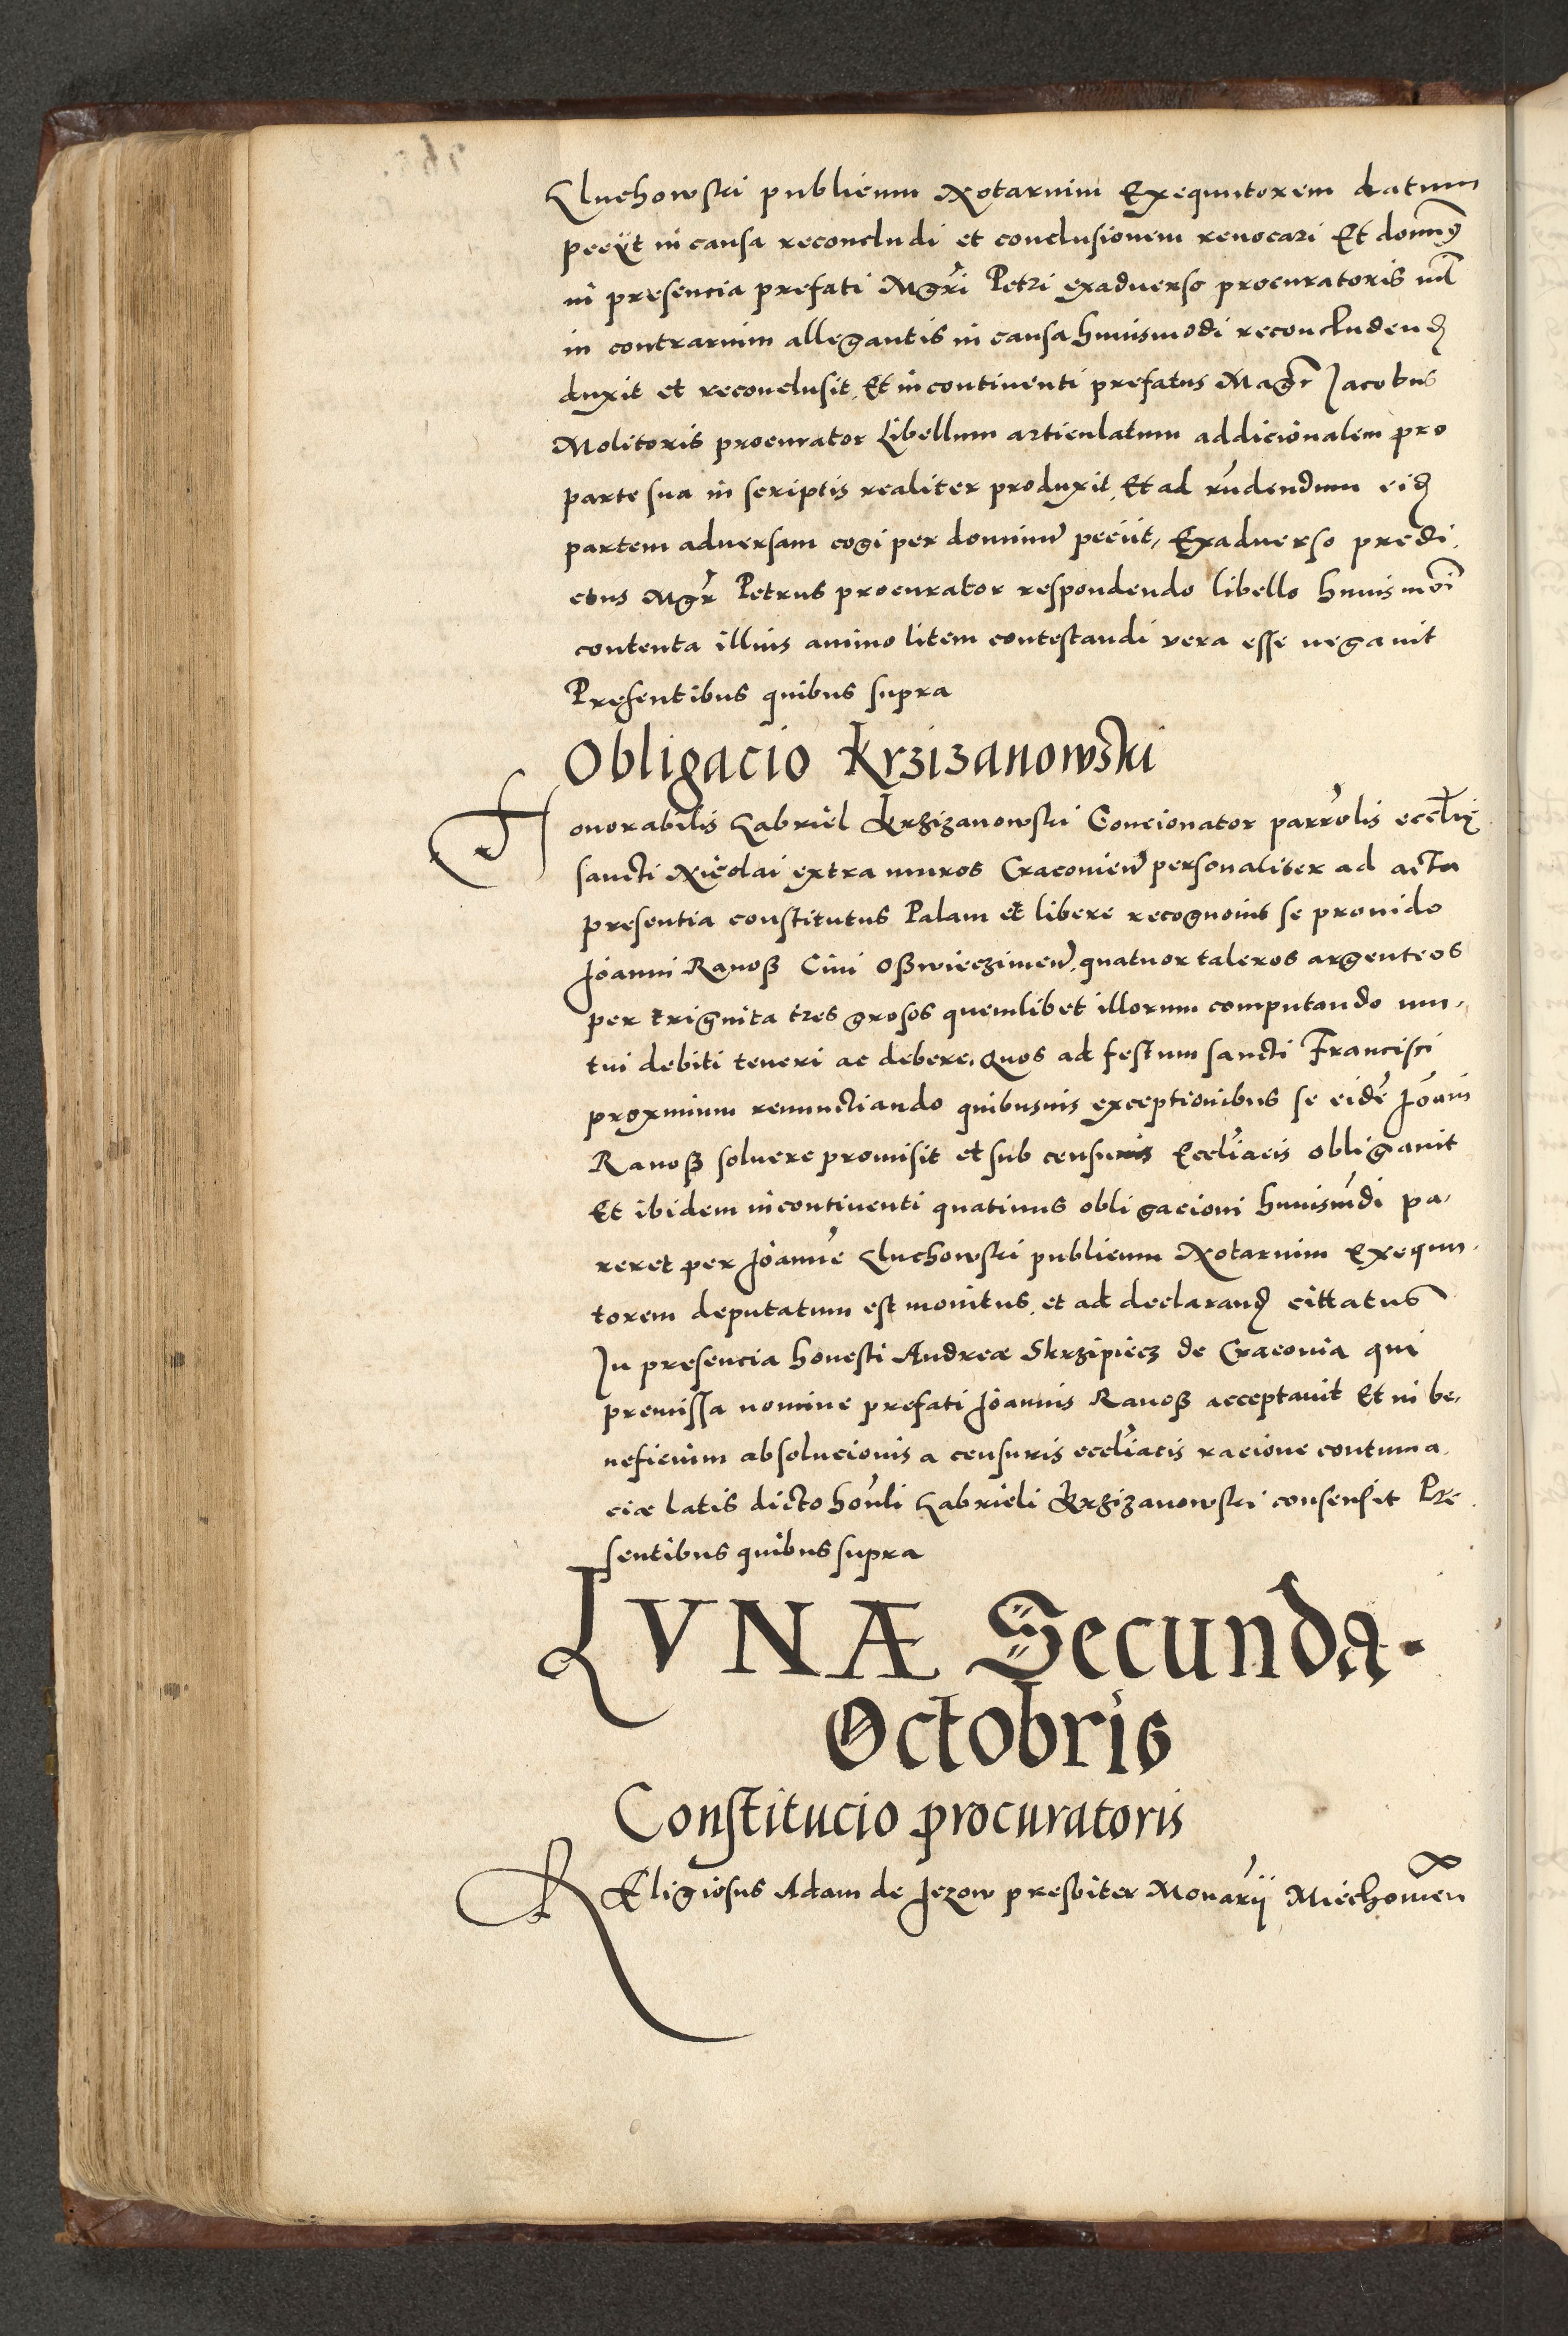 Gluchowski publicum Notarium Exequutorem datum
peeijt in causa reconcludi et conclusionem revocari Et domnꝰ
in presencia prefati Mgr̃i Petri exadverso procuratoris nil̃
in contrarium allegantis in causa huiusmodi reconcludenđ
duxit et reconclusit. Et incontinenti prefatus Magr̃ Jacobus
Molitoris procurator Libellum articulatum addicionalem pro
parte sua in scriptis realiter produxit, Et ad rñdendum eiđ
partem adversam cogi per dominũ peciit, Exadverso predi,
ctus Mgr̃ Petrus procurator respondendo libello huiusmõi
contenta illius animo litem contestandi vera esse negavit
Presentibus quibus supra
Obligacio Krzizanowski
Honorabilis Gabriel Krzizanowski Concionator parrõlis eccl̃ię
sancti Nicolai extra muros Cracovień personaliter ad acta
presentia constitutus Palam et libere recognovit se provido
Joanni Ranoß Civi Oßwieczimeñ, quatuor taleros argenteos
per triginta tres grosos quemlibet illorum computando mu,
tui debiti teneri ac debere, Quos ad festum sancti Francisci
proximum renunctiando quibusvis exceptionibus se eidẽ Joãni
Ranoß solvere promisit et sub censuris Eccl̃iacis obligavit
Et ibidem incontinenti quatinus obligacioni huiusmõdi pa,
reret per Joannẽ Gluchowski publicum Notarium Exequu,
torem deputatum est monitus, et ad declaranđ cittatus
In presencia honesti Andreæ Skrzipiecz de Cracovia qui
premissa nomine prefati Joannis Ranoß acceptavit Et in be,
neficium absolucionis a censuris eccl̃iacis racione contuma,
ciæ latis dicto hoñli Gabrieli Krzizanowski consensit Pre
sentibus quibus supra
LVNÆ Secunda
Octobris
Constitucio procuratoris
REligiosus Adam de Jezow presbiter Monãrij Miechovieñ